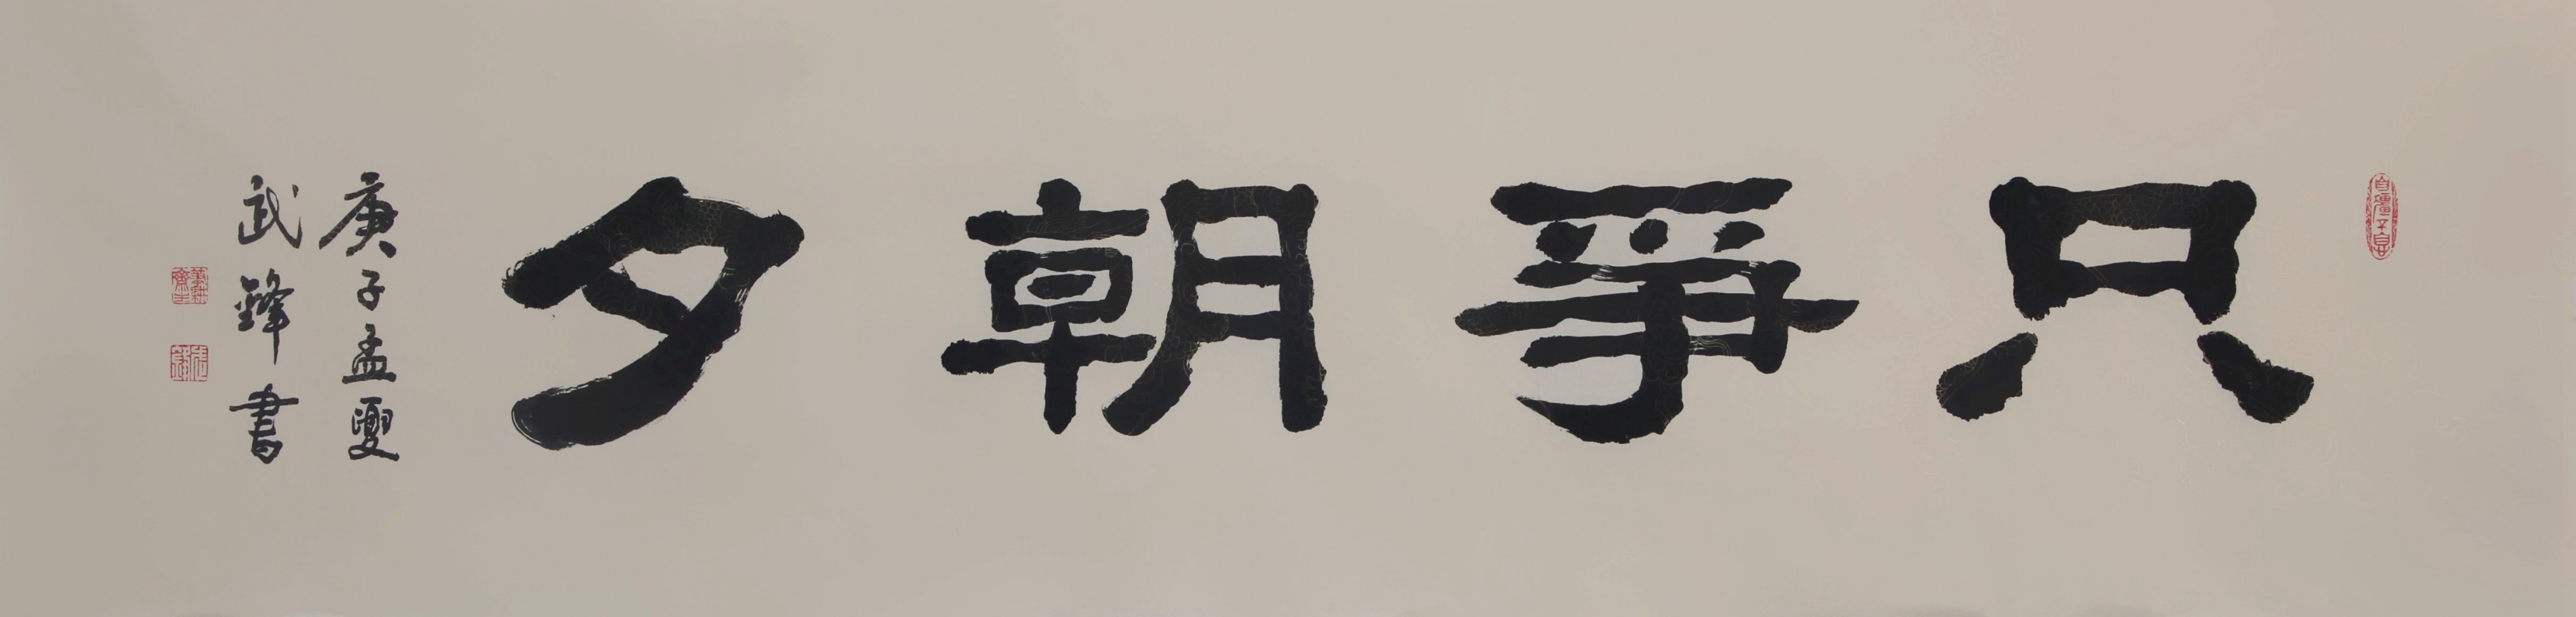 只爭朝夕
庚子孟夏
武鋒書